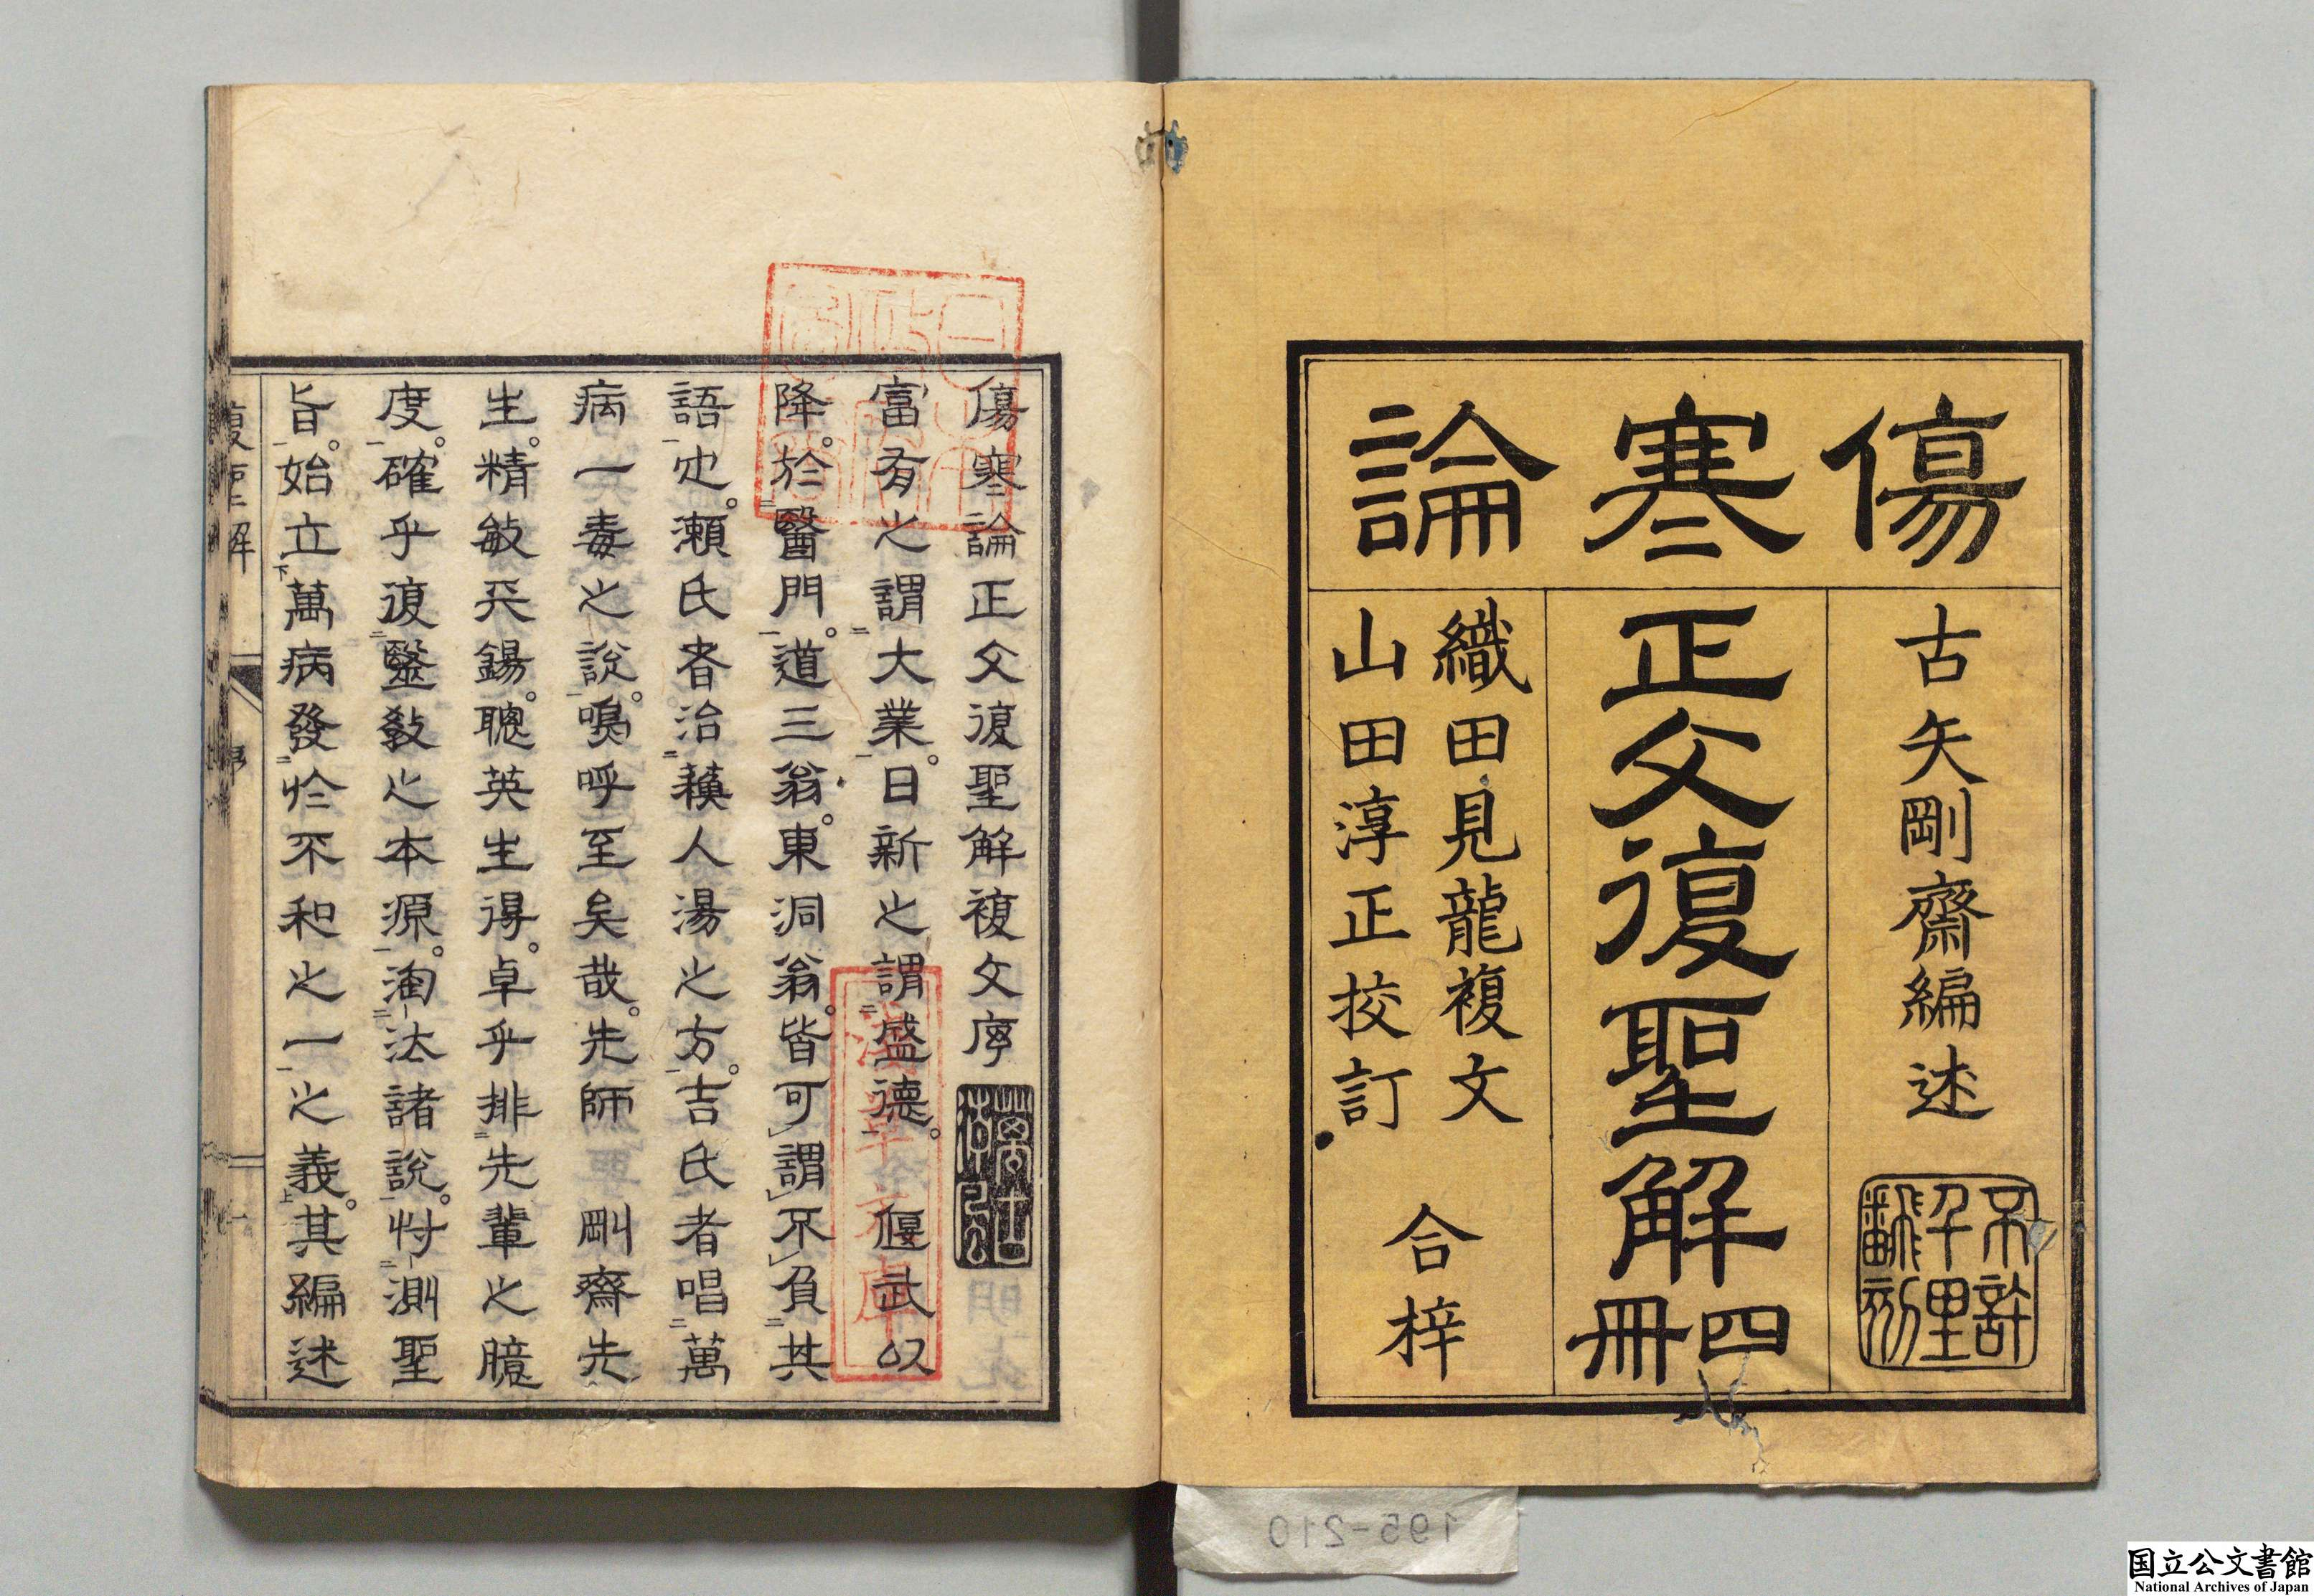 傷寒論
古矢剛齋編述
不許
千里
翻刻
正文復聖解四冊
織田見龍複文
山田淳正挍訂
合梓
傷寒論正文復聖解複文序
富有之謂大業。日新之謂盛德。偃武以
降。於醫門。道三翁。東洞翁。皆可謂不負其
語也。瀬氏者治藾人湯之方。吉氏者唱萬
病一毒之說。嗚呼至矣哉。先師剛齋先
生。精敏天錫。聰英生得。卓乎排先輩之臆
度。確乎復醫敎之本源。淘汰諸說。忖測聖
旨。始立萬病發於不和之一之義。其編述
復聖解
序
一
195-210
国立公文書館
National Archives of Japan